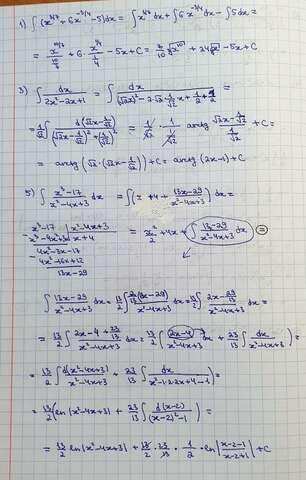 1) ∫(x^{4/6}+6x^{-3/4}-5)dx = ∫x^{4/6}dx + ∫6x^{-3/4}dx - ∫5dx =
= x^{10/6}/(10/6) + 6·x^{1/4}/(1/4) - 5x + C = 6/10 √x^{10} + 24 ∜x - 5x + C
3) ∫ dx/(2x²-2x+1) = ∫ dx/((√2x)²-2·√2·1/√2·x+1/2+1/2) =
= 1/√2 ∫ d(√2x-1/√2)/((√2x-1/√2)²+(1/√2)²) = 1/√2 · 1/(1/√2) arctg (√2x-1/√2)/(1/√2) + C =
= arctg (√2·(√2x-1/√2)) + C = arctg (2x-1) + C
5) ∫ (x³-17)/(x²-4x+3) dx = ∫(x+4+(13x-29)/(x²-4x+3))dx =
x³-17 | x²-4x+3
x³-4x²+3x | x+4
4x²-3x-17
4x²-16x+12
13x-29
= x²/2 + 4x + ∫ (13x-29)/(x²-4x+3) dx =
∫ (13x-29)/(x²-4x+3) dx = 13/2 ∫ 2/13(13x-29)/(x²-4x+3) dx = 13/2 ∫ (2x-58/13)/(x²-4x+3) dx =
= 13/2 ∫ (2x-4+23/13)/(x²-4x+3) dx = 13/2 (∫ (2x-4)/(x²-4x+3) dx + 23/13 ∫ dx/(x²-4x+3) =
= 13/2 ∫ d(x²-4x+3)/(x²-4x+3) + 23/13 ∫ dx/(x²-1·2·2x+4-1) =
= 13/2 (ln|x²-4x+3| + 23/13 ∫ d(x-2)/((x-2)²-1) =
= 13/2 ln|x²-4x+3| + 13/2 · 23/13 · 1/2 · ln|(x-2-1)/(x-2+1)| + C